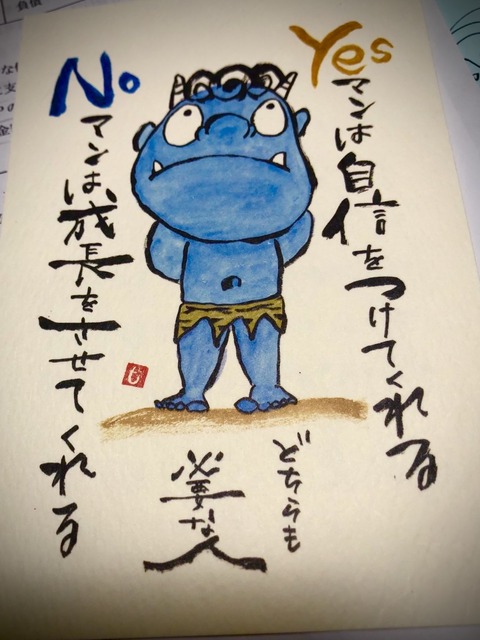 Yesマンは自信をつけてくれる
Noマンは成長をさせてくれる
どちらも
必要な人
負債